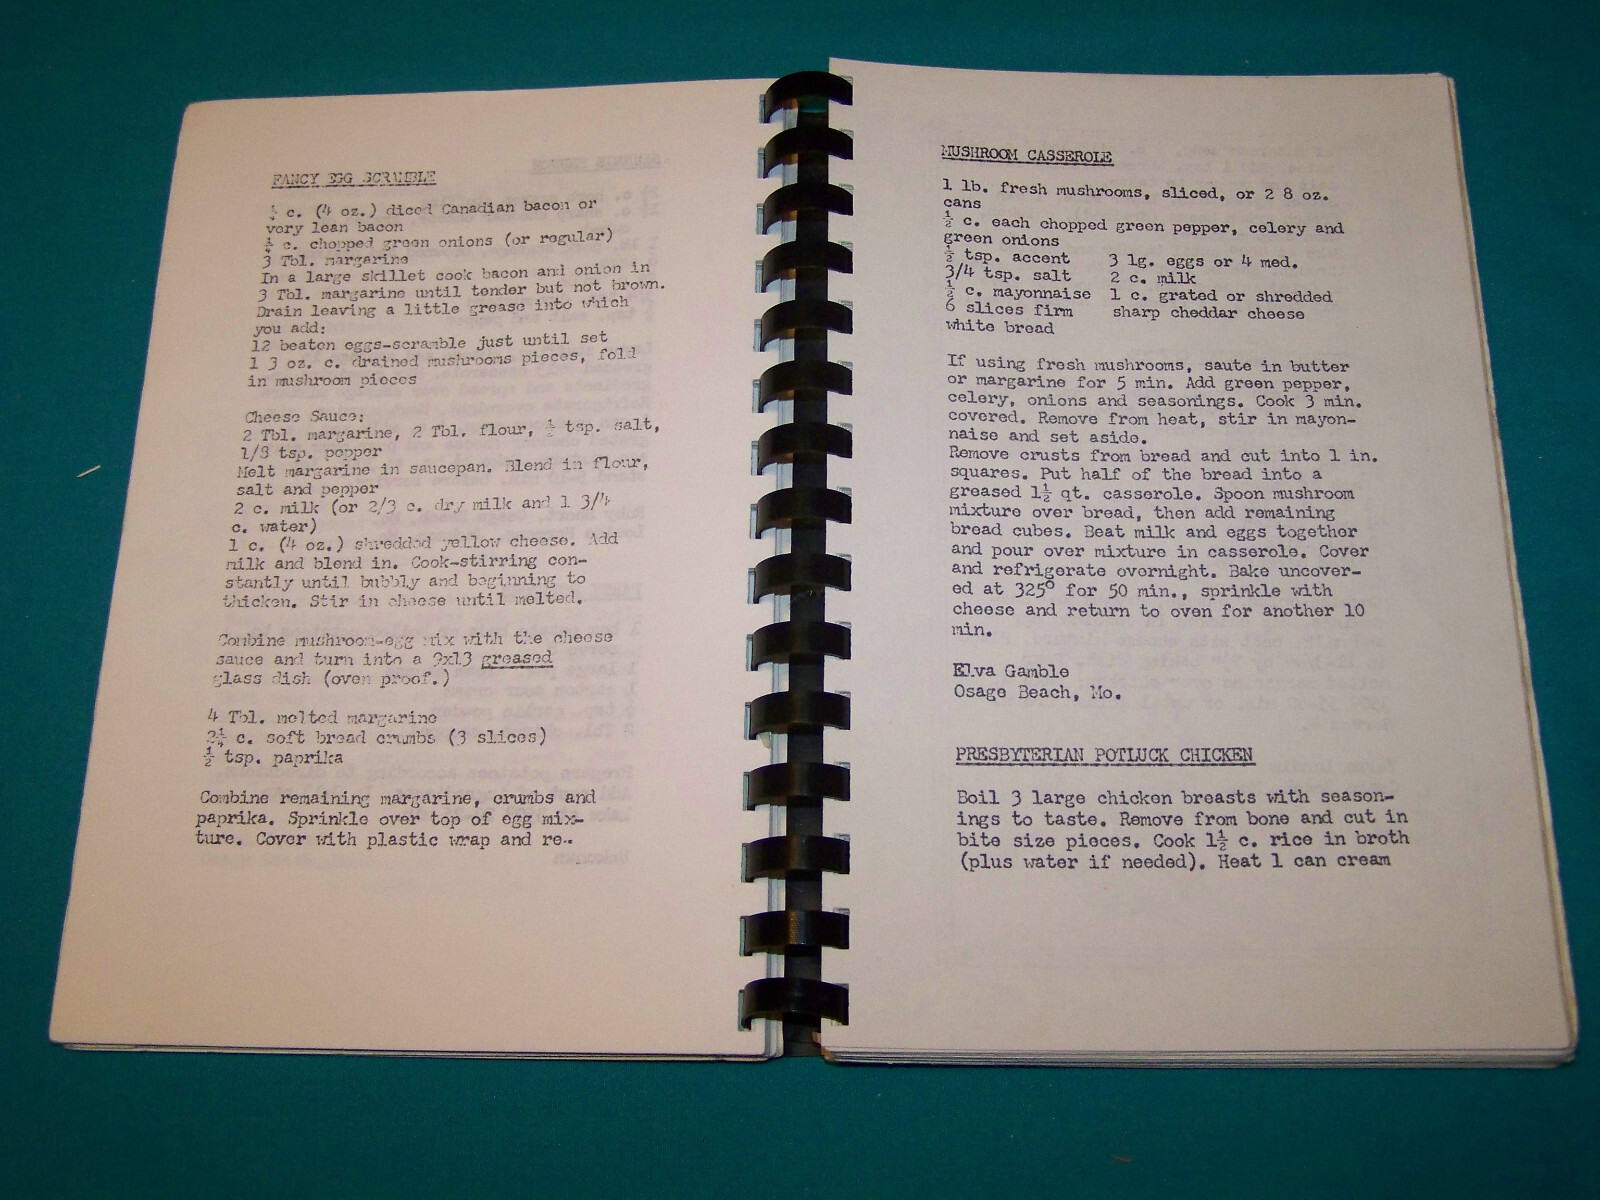 FANCY EGG SCRAMBLE
c. (4 oz.) diced Canadian bacon or
very lean bacon
c. chopped green onions (or regular)
3 Tbl. margarine
In a large skillet cook bacon and onion in
3 Tbl. margarine until tender but not brown.
Drain leaving a little grease into which
you add:
12 beaten eggs-scramble just until set
1 3 oz. c. drained mushrooms pieces, fold
in mushroom pieces
Cheese Sauce:
2 Tbl. margarine, 2 Tbl. flour, ½ tsp. salt,
1/8 tsp. pepper
Melt margarine in saucepan. Blend in flour,
salt and pepper
2 c. milk (or 2/3 c. dry milk and 1 3/4
c. water)
1 c. (4 oz.) shredded yellow cheese. Add
milk and blend in. Cook-stirring con-
stantly until bubbly and beginning to
thicken. Stir in cheese until melted.
Combine mushroom-egg mix with the cheese
sauce and turn into a 9x13 greased
glass dish (oven proof.)
4 Tbl. melted margarine
2¼ c. soft bread crumbs (3 slices)
½ tsp. paprika
Combine remaining margarine, crumbs and
paprika. Sprinkle over top of egg mix-
ture. Cover with plastic wrap and re-
MUSHROOM CASSEROLE
1 lb. fresh mushrooms, sliced, or 2 8 oz.
cans
½ c. each chopped green pepper, celery and
green onions
½ tsp. accent 3 lg. eggs or 4 med.
3/4 tsp. salt 2 c. milk
½ c. mayonnaise 1 c. grated or shredded
6 slices firm sharp cheddar cheese
white bread
If using fresh mushrooms, saute in butter
or margarine for 5 min. Add green pepper,
celery, onions and seasonings. Cook 3 min.
covered. Remove from heat, stir in mayon-
naise and set aside.
Remove crusts from bread and cut into 1 in.
squares. Put half of the bread into a
greased 1½ qt. casserole. Spoon mushroom
mixture over bread, then add remaining
bread cubes. Beat milk and eggs together
and pour over mixture in casserole. Cover
and refrigerate overnight. Bake uncover-
ed at 325° for 50 min., sprinkle with
cheese and return to oven for another 10
min.
Elva Gamble
Osage Beach, Mo.
PRESBYTERIAN POTLUCK CHICKEN
Boil 3 large chicken breasts with season-
ings to taste. Remove from bone and cut in
bite size pieces. Cook 1½ c. rice in broth
(plus water if needed). Heat 1 can cream